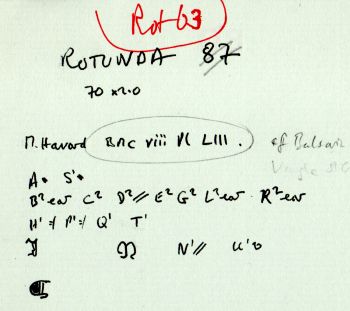 Rot 63
ROTUNDA 87
70 x 2.0
M. Havard BMC viii Pl LIII. cf Balsac
A• S'•
B² ear C² D²// E² G² L² ear R² ear
H' =/ P' =/ Q' T'
N'// U'